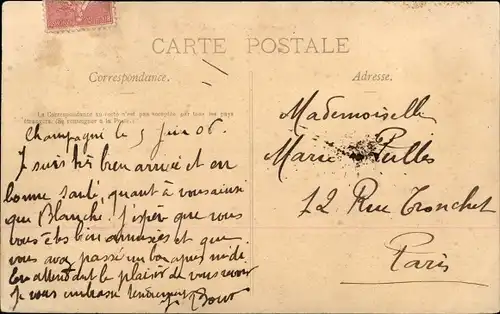 CARTE POSTALE
Correspondance.
Adresse.
La Correspondance au recto n'est pas acceptée par tous les pays
étrangers. (Se renseigner à la Poste.)
Champagne le 5 Juin 06.
Je suis très bien arrivée et en
bonne santé, quant à vous ainsi
que Blanche j'espère que vous
vous êtes bien amusées et que
vous avez passé un bon après midi.
En attendant le plaisir de vous revoir
Je vous embrasse tendrement
Mademoiselle
Marie
12 Rue Tronchet
Paris